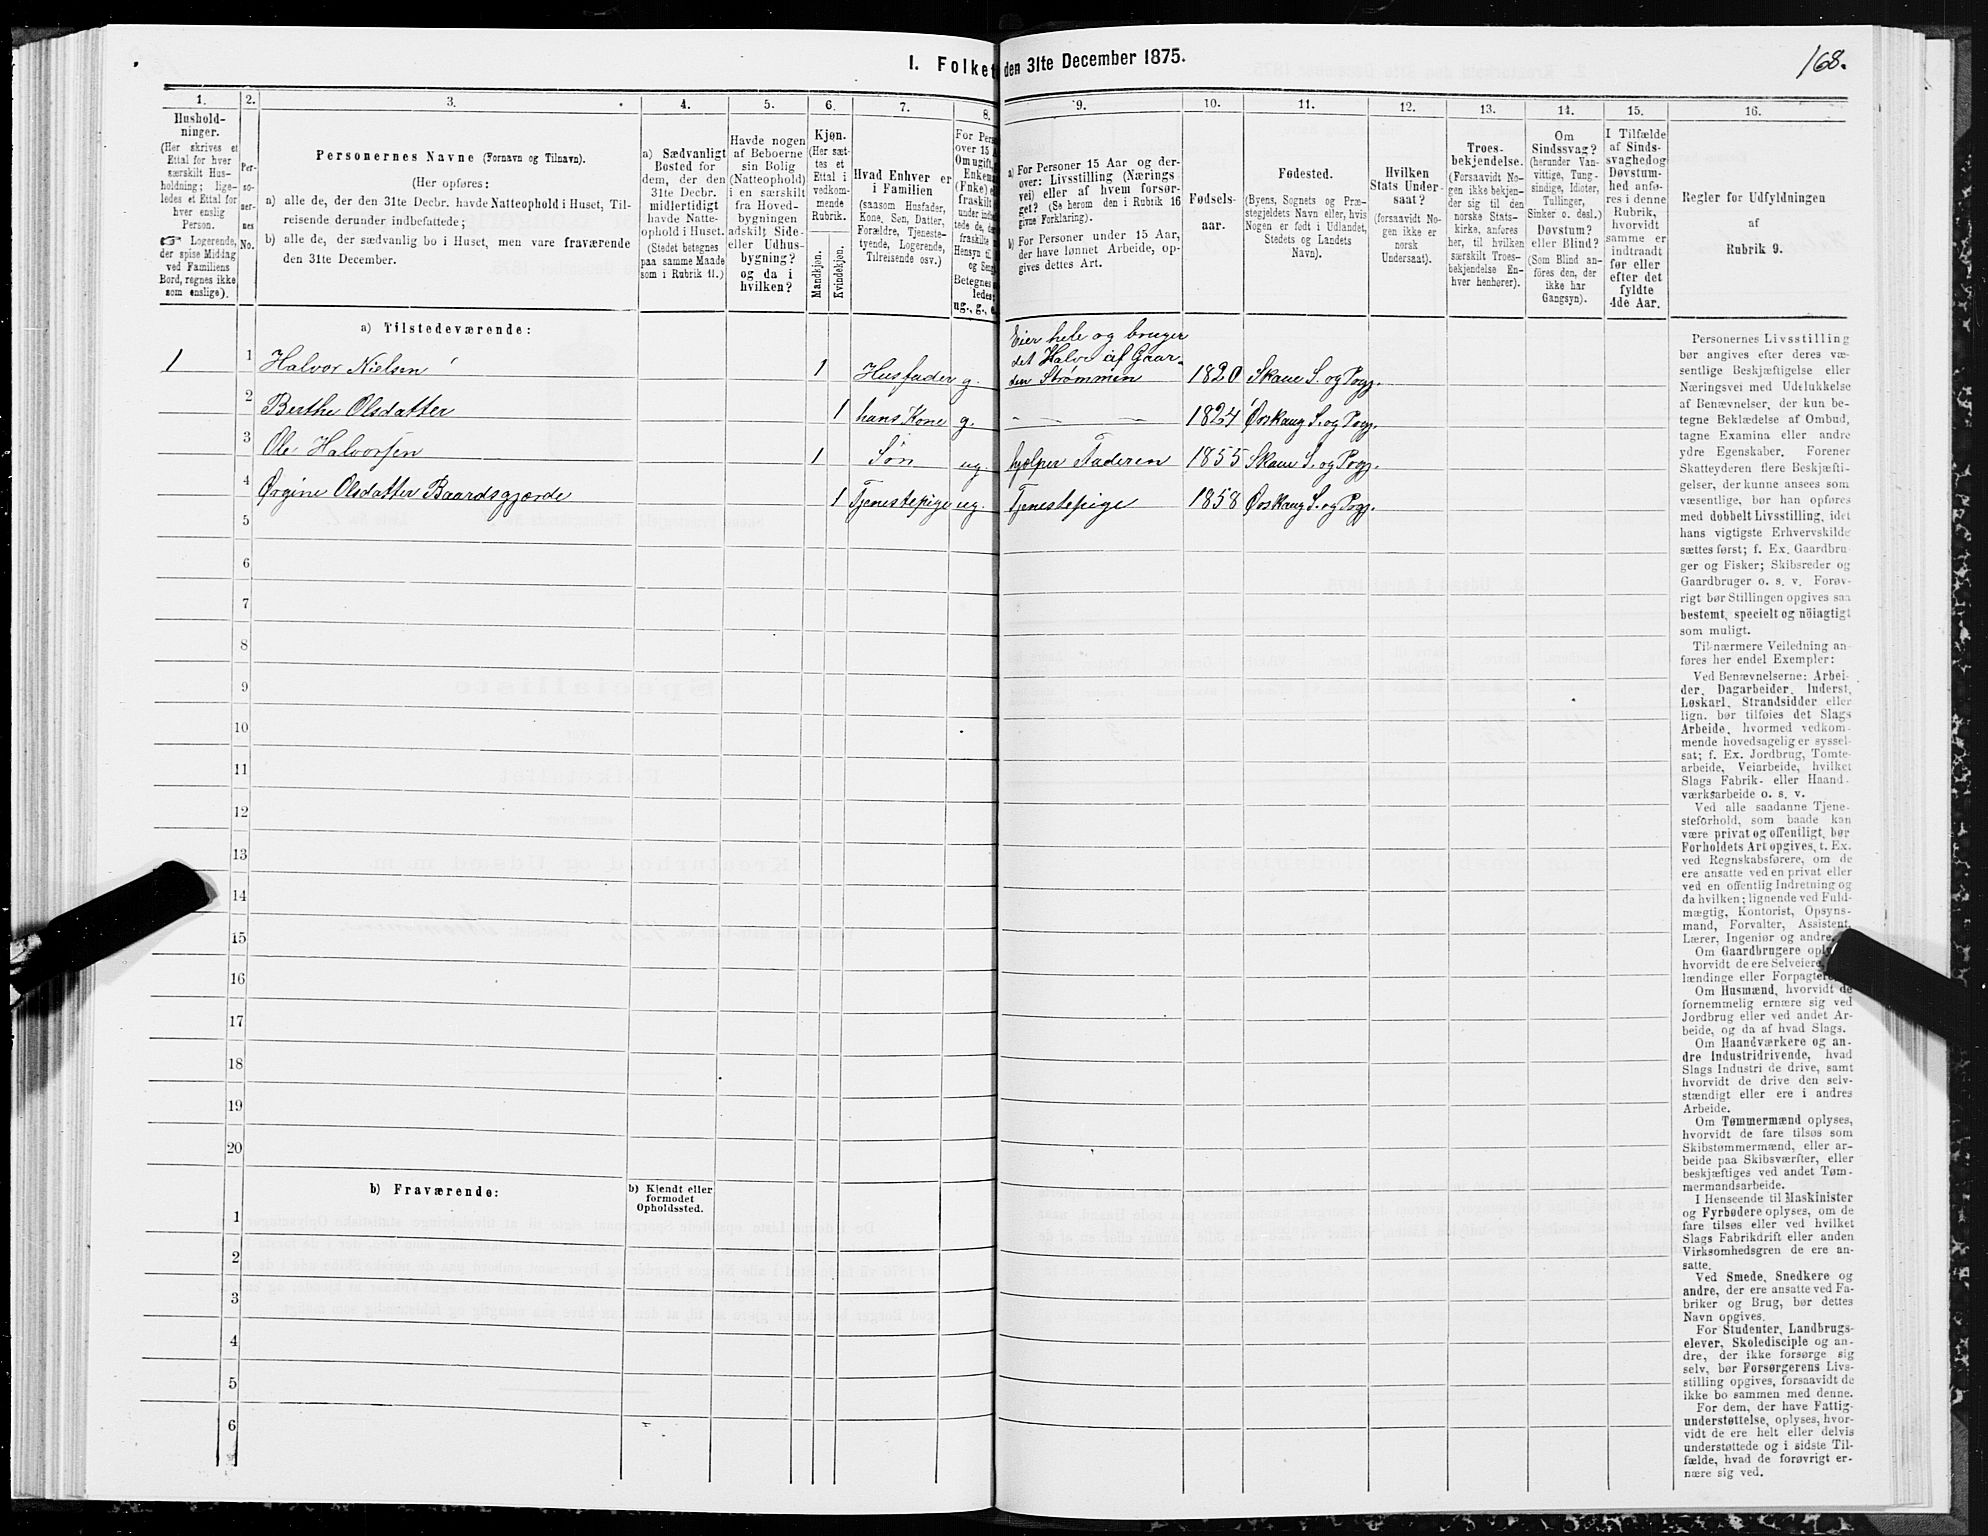 I. Folket den 31te December 1875.
168.
1. 2. 3. 4. 5. 6. 7. 8. 9. 10. 11. 12. 13. 14. 15. 16.
Hushold-
ninger.
(Her skrives et
Ettal for hver
særskilt Hus-
holdning; lige-
ledes et Ettal for
hver enslig
Person.
Logerende,
der spise Middag
ved Familiens
Bord, regnes ikke
som enslige).
Per-
so-
ner-
nes
No.
Personernes Navne (Fornavn og Tilnavn).
(Her opføres:
a) alle de, der den 31te Decbr. havde Natteophold i Huset, Til-
reisende derunder indbefattede;
b) alle de, der sædvanlig bo i Huset, men vare fraværende
den 31te December.
a) Sædvanligt
Bosted for
dem, der den
31te Decbr.
midlertidigt
havde Natte-
ophold i Huset.
(Stedet betegnes
paa samme Maade
som i Rubrik 11.)
Havde nogen
af Beboerne
sin Bolig
(Natteophold)
i en særskilt
fra Hoved-
bygningen
adskilt Side-
eller Udhus-
bygning?
og da i
hvilken?
Kjøn.
(Her sæt-
tes et
Ettal i
vedkom-
mende
Rubrik.
Mandkjøn.
Kvindekjøn.
Hvad Enhver er
i Familien
(saasom Husfader,
Kone, Søn, Datter,
Forældre, Tjeneste-
tyende, Logerende,
Tilreisende osv.)
For Pers
over 15 A
Om ugift,
Enkem
(Fnke) e
fraskilt
Betegnes
ledes:
ug., g., e
a) For Personer 15 Aar og der-
over: Livsstilling (Nærings
vei) eller af hvem forsør-
get? (Se herom den i Rubrik 16
givne Forklaring).
b) For Personer under 15 Aar,
der have lønnet Arbeide, op-
gives dettes Art.
Fødsels-
aar.
Fødested.
(Byens, Sognets og Præ-
stegjeldets Navn eller, hvis
Nogen er født i Udlandet,
Stedets og Landets
Navn).
Hvilken
Stats Under-
saat?
(forsaavidt No-
gen ikke er
norsk
Undersaat).
Troes-
bekjendelse.
(Forsaavidt No-
gen ikke bekjen-
der sig til den
norske Stats-
kirke, anføres
her, til hvilken
særskilt Troes-
bekjendelse En-
hver henhører).
Om
Sindssvag?
(herunder Van-
vittige, Tung-
sindige, Idioter,
Tullinger,
Sinker o. desl.)
Døvstum?
eller Blind?
(Som Blind an-
føres den, der
ikke har
Gangsyn).
I Tilfælde
af Sinds-
svaghed og
Døvstum-
hed anfø-
res i denne
Rubrik,
hvorvidt
samme er
indtraadt
før eller
efter det
fyldte
4de Aar.
Regler for Udfyldningen
af
Rubrik 9.
a) Tilstedeværende:
1 1 Halvor Nielsen 1 Husfader g. Eier hele og bruger
det Halve af Gaar-
den Strømmen 1820 Skaue S. og Pgj.
2 Berthe Olsdatter 1 hans Kone g. — — 1824 Ørskaug S. og Pgj.
3 Ole Halvorsen 1 Søn ug. hjelper Faderen 1855 Skaue S. og Pgj.
4 Ørgine Olsdatter Baardsgjerde 1 Tjenestepige ug. Tjenestepige 1858 Ørskaug S. og Pgj.
5
6
7
8
9
10
11
12
13
14
15
16
17
18
19
20
b) Fraværende:
b) Kjendt eller
formodet
Opholdssted.
1
2
3
4
5
6
Personernes Livsstilling
bør angives efter deres væ-
sentlige Beskjæftigelse eller
Næringsvei med Udelukkelse
af Benævnelser, der kun be-
tegne Beklædelse af Ombud,
tagne Examina eller andre
ydre Egenskaber. Forener
Skatteyderen flere Beskjæfti-
gelser, der kunne ansees som
væsentlige, bør han opføres
med dobbelt Livsstilling, idet
hans vigtigste Erhvervskilde
sættes først; f. Ex. Gaardbru-
ger og Fisker; Skibsreder og
Gaardbruger o. s. v. Forøv-
rigt bør Stillingen opgives saa
bestemt, specielt og nöiagtigt
som muligt.
Til nærmere Veiledning an-
føres her endel Exempler:
Ved Benævnelserne: Arbei-
der, Dagarbeider, Inderst,
Løskarl, Strandsidder eller
lign. bør tilføies det Slags
Arbeide, hvormed vedkom-
mende hovedsagelig er syssel-
sat; f. Ex. Jordbrug, Tomte-
arbeide, Veiarbeide, hvilket
Slags Fabrik- eller Haand-
værksarbeide o. s. v.
Ved alle saadanne Tjene-
steforhold, som baade kan
være privat og offentligt, bør
Forholdets Art opgives, t. Ex.
ved Regnskabsførere, om de
ere ansatte ved en privat eller
ved en offentlig Indretning og
da hvilken; lignende ved Fuld-
mægtig, Kontorist, Opsyns-
mand, Forvalter, Assistent,
Lærer, Ingeniør og andre.
Om Gaardbrugere oply
hvorvidt de ere Selveiere,
lændinge eller Forpagtere
Om Husmænd, hvorvidt de
fornemmelig ernære sig ved
Jordbrug eller ved andet Ar-
beide, og da af hvad Slags.
Om Haandværkere og an-
dre Industridrivende, hvad
Slags Industri de drive, samt
hvorvidt de drive den selv-
stændigt eller ere i andres
Arbeide.
Om Tømmermænd oplyses,
hvorvidt de fare tilsøs som
Skibstømmermænd, eller ar-
beide paa Skibsværfter, eller
beskjæftiges ved andet Tøm-
mermandsarbeide.
I Henseende til Maskinister
og Fyrbødere oplyses, om de
fare tilsøs eller ved hvilket
Slags Fabrikdrift eller anden
Virksomhedsgren de ere an-
satte.
Ved Smede, Snedkere og
andre, der ere ansatte ved Fa-
briker og Brug, bør dettes
Navn opgives.
For Studenter, Landbrugs-
elever, Skoledisciple og an-
dre, der ikke forsørge sig
selv, bør Forsørgerens Livs-
stilling opgives, forsaavidt de
ikke bo sammen med denne.
For dem, der have Fattig-
understøttelse, oplyses, hvor-
vidt de ere helt eller delvis
understøttede og i sidste Til-
fælde, hvad de forøvrigt er-
nære sig ved.